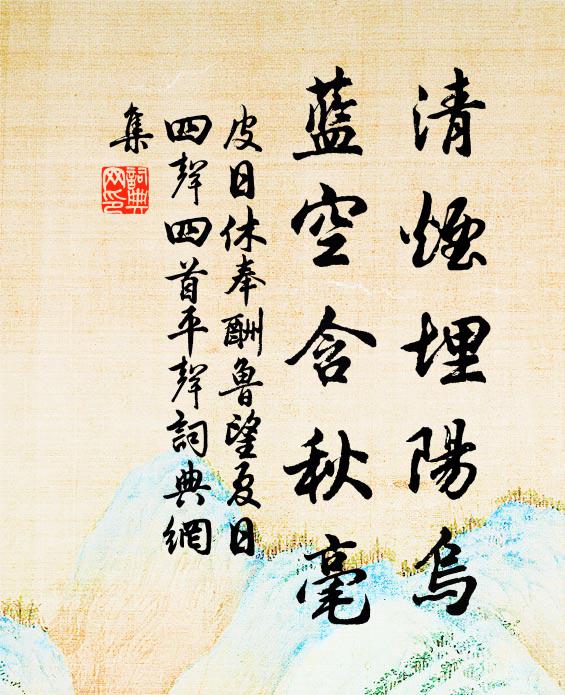 清煙埋陽烏
藍空含秋毫
皮日休奉酬魯望夏日
四聲四首平聲詞典網
集
詞典網印